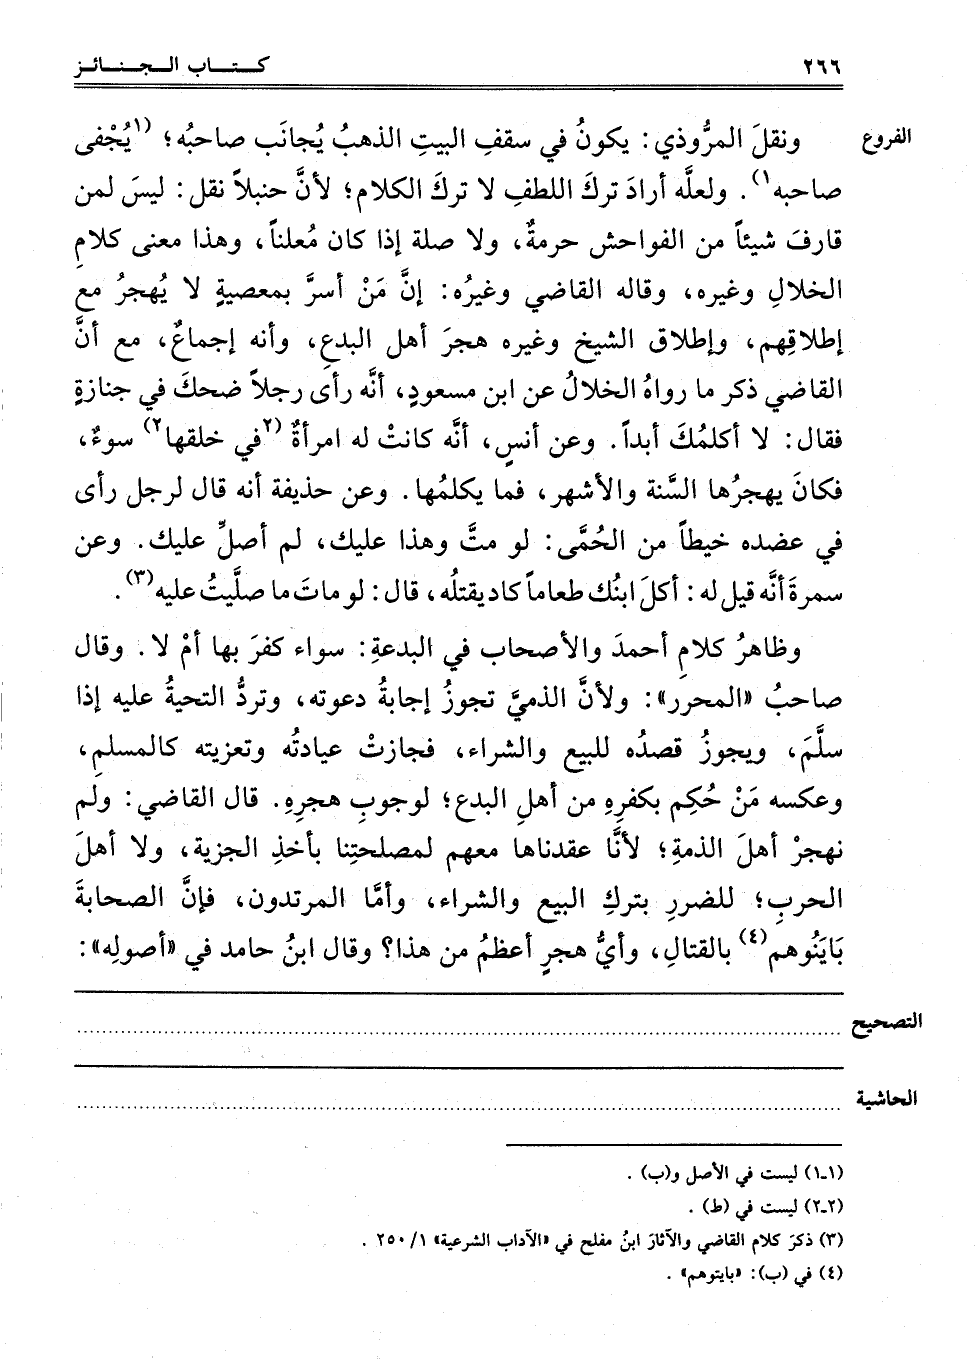 ٢٦٦ كتاب الجنائز
الفروع ونقلَ المرُّوذي: يكونُ في سقفِ البيتِ الذهبُ يُجانَب صاحبُه؛ (١يُجْفى
صاحبه١). ولعلَّه أرادَ تركَ اللطفِ لا تركَ الكلام؛ لأنَّ حنبلاً نقل: ليسَ لمن
قارفَ شيئاً من الفواحش حرمةٌ، ولا صلة إذا كان مُعلناً، وهذا معنى كلامِ
الخلالِ وغيره، وقاله القاضي وغيرُه: إنَّ مَنْ أسرَّ بمعصيةٍ لا يُهجرُ مع
إطلاقِهم، وإطلاق الشيخ وغيره هجرَ أهل البدعِ، وأنه إجماعٌ، مع أنَّ
القاضي ذكر ما رواهُ الخلالُ عن ابن مسعودٍ، أنَّه رأى رجلاً ضحكَ في جنازةٍ
فقال: لا أكلمُكَ أبداً. وعن أنسٍ، أنَّه كانتْ له امرأةٌ (٢في خلقها٢) سوءٌ،
فكانَ يهجرُها السَّنة والأشهر، فما يكلمُها. وعن حذيفة أنه قال لرجل رأى
في عضده خيطاً من الحُمَّى: لو متَّ وهذا عليك، لم أصلِّ عليك. وعن
سمرةَ أنَّه قيل له: أكلَ ابنُك طعاماً كاد يقتلُه، قال: لو ماتَ ما صلَّيتُ عليه(٣).
وظاهرُ كلامِ أحمدَ والأصحاب في البدعةِ: سواء كفرَ بها أمْ لا. وقال
صاحبُ «المحرر»: ولأنَّ الذميَّ تجوزُ إجابةُ دعوته، وتردُّ التحيةُ عليه إذا
سلَّمَ، ويجوزُ قصدُه للبيع والشراء، فجازتْ عيادتُه وتعزيته كالمسلمِ،
وعكسه مَنْ حُكِم بكفرِهِ من أهلِ البدع؛ لوجوبِ هجرِهِ. قال القاضي: ولم
نهجرْ أهلَ الذمةِ؛ لأنَّا عقدناها معهم لمصلحتِنا بأخذِ الجزية، ولا أهلَ
الحربِ؛ للضررِ بتركِ البيع والشراء، وأمَّا المرتدون، فإنَّ الصحابةَ
بَايَنُوهم(٤) بالقتالِ، وأيُّ هجرٍ أعظمُ من هذا؟ وقال ابنُ حامد في «أصولِه»:
التصحيح ....................
الحاشية ....................
(١-١) ليست في الأصل و(ب).
(٢-٢) ليست في (ط).
(٣) ذكرَ كلام القاضي والآثارَ ابنُ مفلح في «الآداب الشرعية» ١/ ٢٥٠.
(٤) في (ب): «بايتوهم».